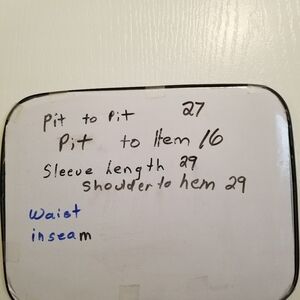 Pit to Pit 27
Pit to Hem 16
Sleeve Length 29
Shoulder to hem 29
Waist
inseam